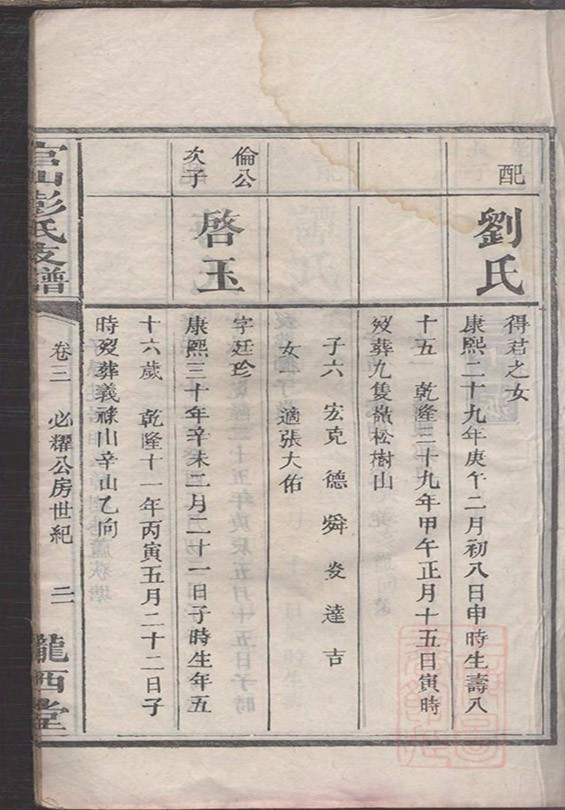 配
劉氏
得君之女
康熙二十九年庚午二月初八日申時生壽八
十五 乾隆三十九年甲午正月十五日寅時
歿葬九隻嶺松樹山
子六 宏克 德 舜 炎 達 吉
女 適張大佑
倫公
次子
啓玉
字廷珍
康熙三十年辛未三月二十一日子時生年五
十六歲 乾隆十一年丙寅五月二十二日子
時歿葬義祿山辛山乙向
官山彭氏支譜
卷三 必耀公房世紀 二
隴西堂